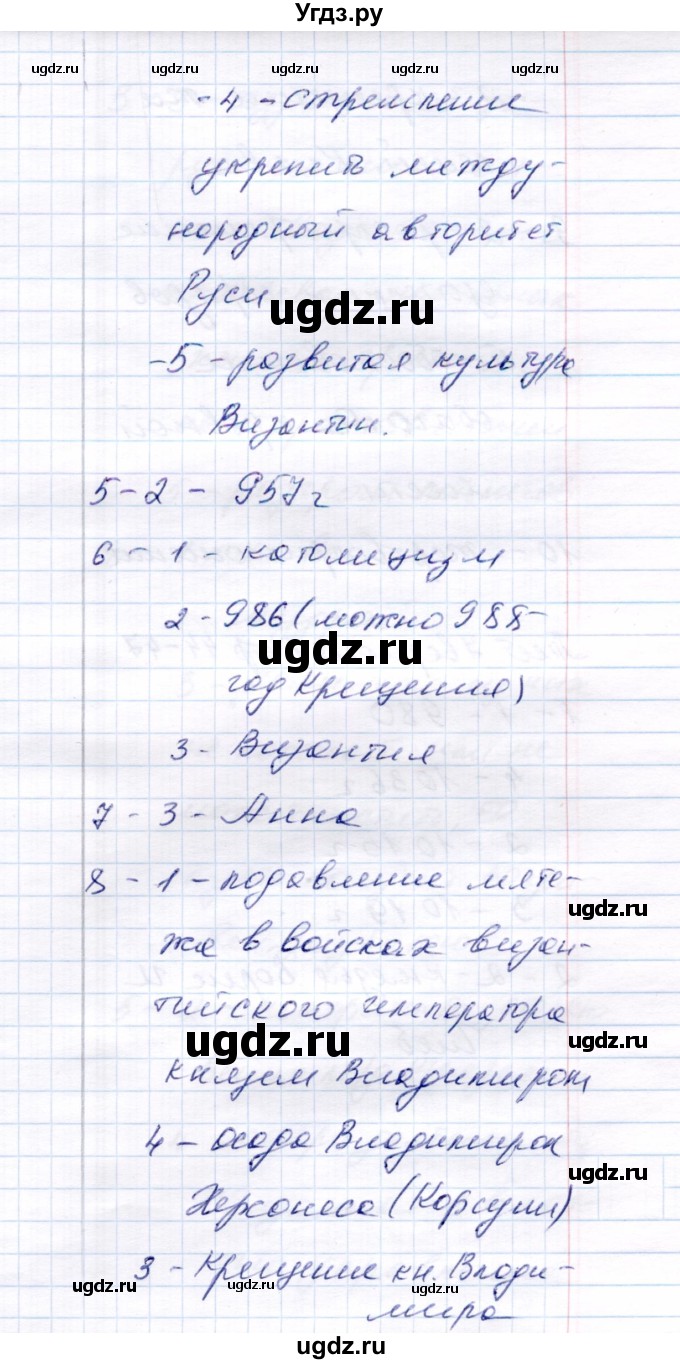 Угдз.ру
ugdz.ru ugdz.ru ugdz.ru ugdz.ru ugdz.ru
- 4 - стремление
укрепить между-
народный авторитет
Руси
ugdz.ru
-5 - развитая культура
Византии.
5 - 2 - 957 г
6 - 1 - католицизм
2 - 986 (можно 988-
ugdz.ru
год Крещения)
3 - Византия
7 - 3 - Анна
8 - 1 - подавление мяте-
ugdz.ru
жа в войсках визан-
тийского императора
ugdz.ru ugdz.ru
князем Владимиром
4 - осада Владимиром
ugdz.ru
Херсонеса (Корсуни)
3 - Крещение кн. Влади-
ugdz.ru ugdz.ru
мира
ugdz.ru